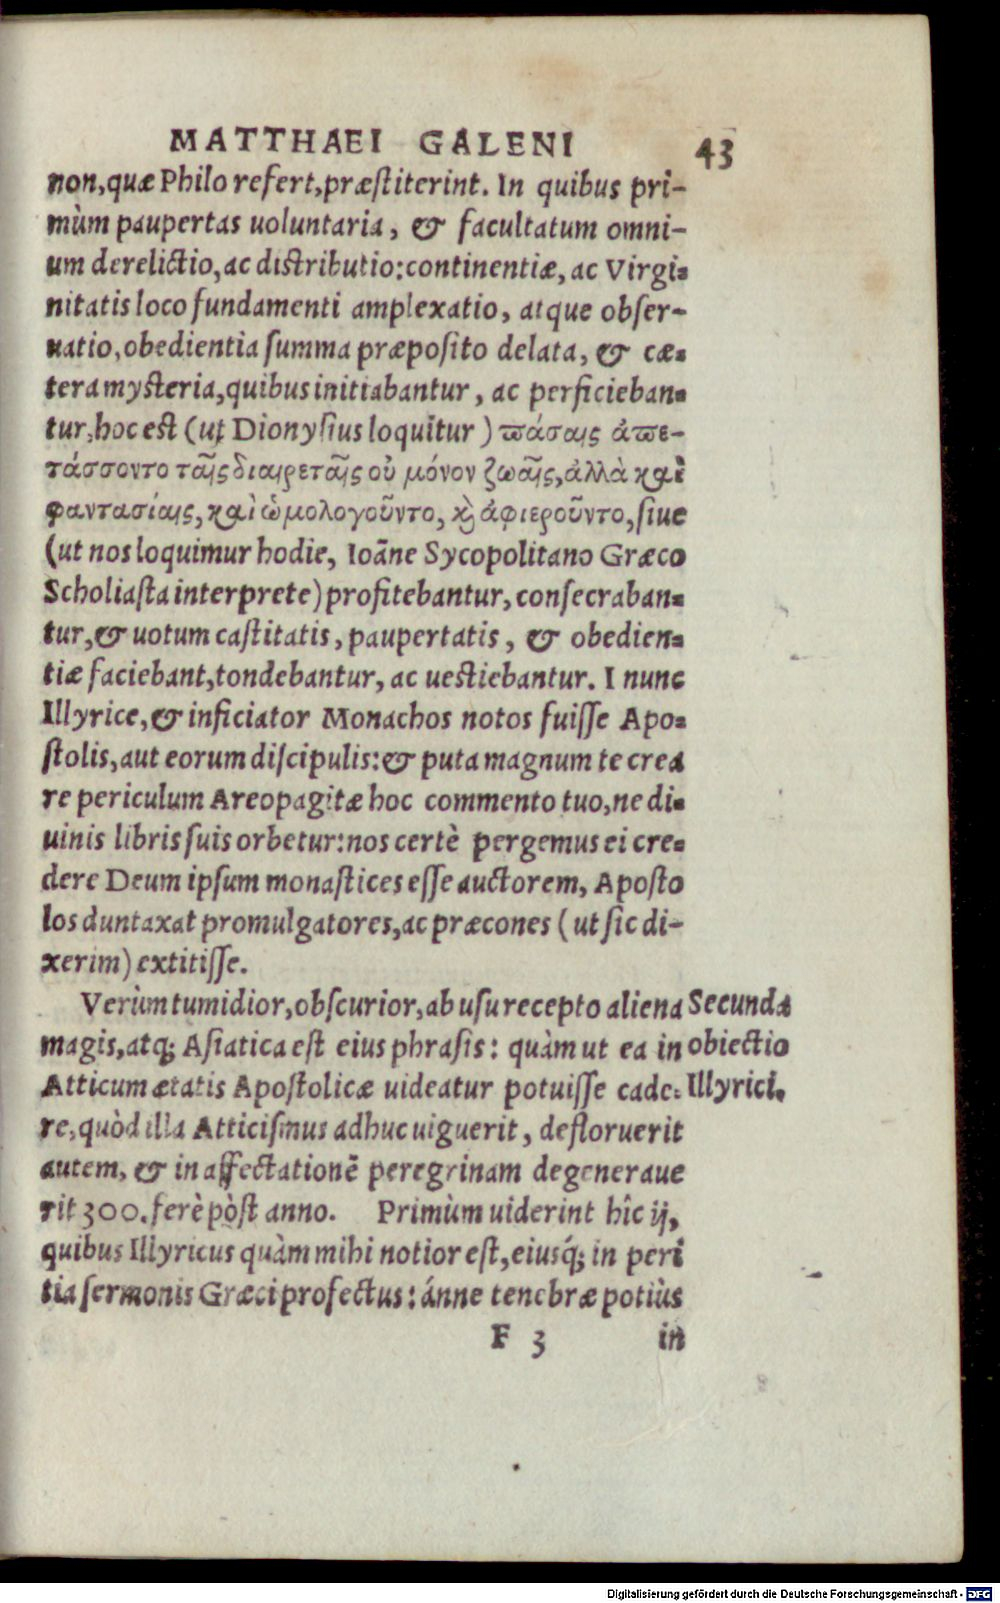 MATTHAEI GALENI 43
non, quæ Philo refert, præstiterint. In quibus pri-
mùm paupertas uoluntaria, & facultatum omni-
um derelictio, ac distributio: continentiæ, ac Virgi-
nitatis loco fundamenti amplexatio, atque obser-
uatio, obedientia summa præposito delata, & cæ-
tera mysteria, quibus initiabantur, ac perficieban-
tur, hoc est (ut Dionysius loquitur) πάσαις ἀπε-
τάσσοντο ταῖς διαιρεταῖς οὐ μόνον ζωαῖς, ἀλλὰ καὶ
φαντασίαις, καὶ ὡμολογοῦντο, κỳ ἀφιεροῦντο, siue
(ut nos loquimur hodie, Ioāne Sycopolitano Græco
Scholiasta interprete) profitebantur, consecraban-
tur, & uotum castitatis, paupertatis, & obedien-
tiæ faciebant, tondebantur, ac uestiebantur. I nunc
Illyrice, & inficiator Monachos notos fuisse Apo-
stolis, aut eorum discipulis: & puta magnum te crea
re periculum Areopagitæ hoc commento tuo, ne di-
uinis libris suis orbetur: nos certè pergemus ei cre-
dere Deum ipsum monastices esse auctorem, Aposto
los duntaxat promulgatores, ac præcones (ut sic di-
xerim) extitisse.
Verùm tumidior, obscurior, ab usu recepto aliena Secunda
magis, atq; Asiatica est eius phrasis: quàm ut ea in obiectio
Atticum ætatis Apostolicæ uideatur potuisse cade- Illyrici.
re, quòd illa Atticismus adhuc uiguerit, defloruerit
autem, & in affectationē peregrinam degeneraue
rit 300. ferè pòst anno. Primùm uiderint hîc ij,
quibus Illyricus quàm mihi notior est, eiusq́; in peri
tia sermonis Græci profectus: ánne tenebræ potiùs
F 3 in
Digitalisierung gefördert durch die Deutsche Forschungsgemeinschaft - DFG